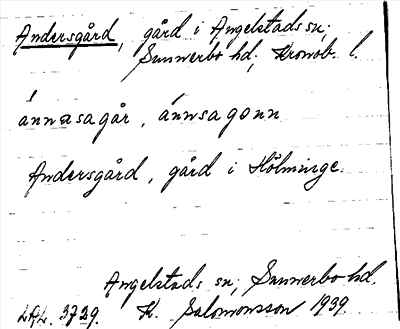 Andersgård, gård i Angelstads sn;
Sunnerbo hd; Kronob. l.
ánnasagår, ánnsagonn
Andersgård, gård i Hölminge.
Angelstads sn; Sunnerbo hd.
LAL. 3729. K. Salomonsson 1939.